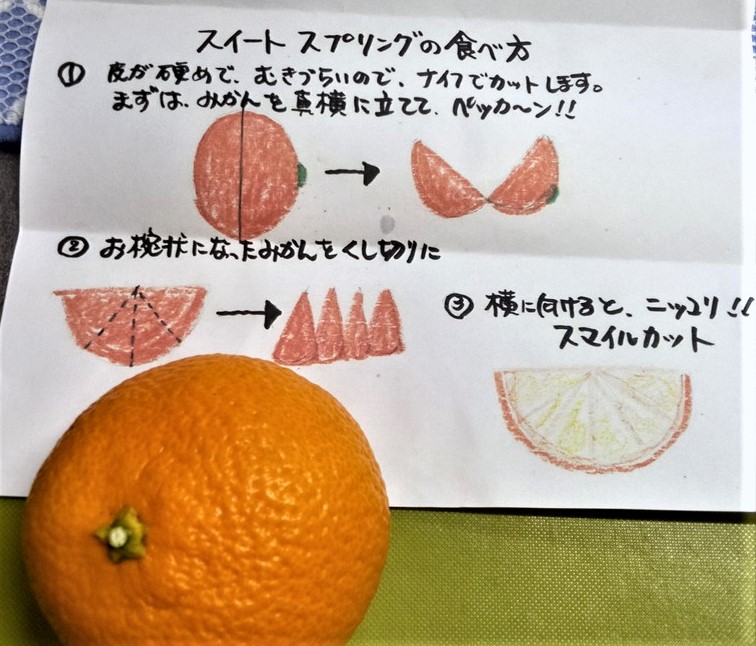 スイート スプリングの食べ方
① 皮が硬めで、むきづらいので、ナイフでカットします。
まずは、みかんを真横に立てて、パッカ〜ン!!
② お椀状になったみかんをくし切りに
③ 横に向けると、ニッコリ!!
スマイルカット